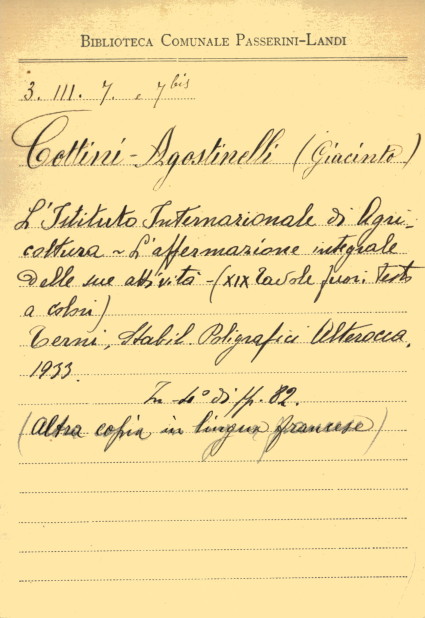 BIBLIOTECA COMUNALE PASSERINI-LANDI
3. III. 7. e 7bis
Cottini-Agostinelli (Giacinto)
L'Istituto Internazionale di Agri-
coltura ~ L'affermazione integrale
delle sue attività - (XIX tavole fuori testo
a colori)
Terni, Stabil. Poligrafici Alterocca,
1933.
In 4° di pp. 82.
(Altra copia in lingua francese)